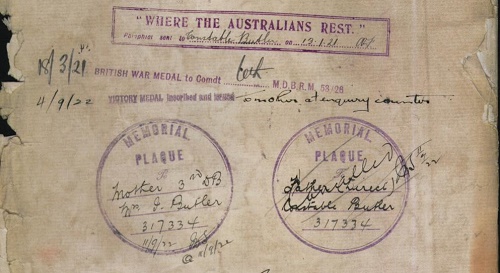 "WHERE THE AUSTRALIANS REST."
Pamphlet sent to Constable Butler on 13.1.21
18/3/21 BRITISH WAR MEDAL to Comdt M.D.B.R.M. 68/26
4/9/22 VICTORY MEDAL inscribed and issued to mother at enquiry counter
MEMORIAL
PLAQUE
To
Mother 3rd DB
Butler
317334
11/9/22
@ 11/9/22
MEMORIAL
PLAQUE
Father
Constable Butler
317334